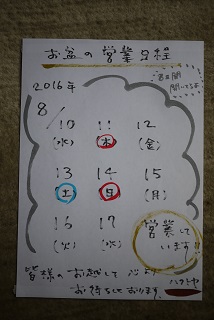 お盆の営業日程
毎日開
開いてるよ
2016年
8/
10 11 12
(水) (木) (金)
13 14 15
(土) (日) (月)
16 17
(火) (水)
営業して
います!!
皆様のお越しを心より
お待ちしております。
ハマトヤ